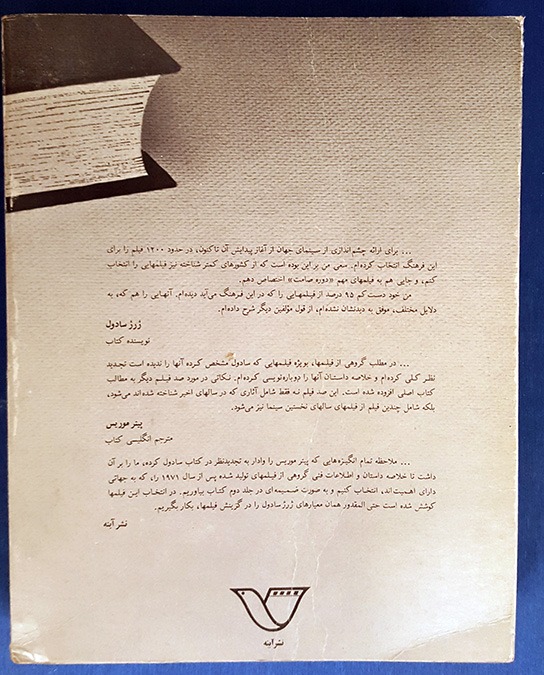 ... برای ارائه چشم‌اندازی از سینمای جهان از آغاز پیدایش آن تاکنون، در حدود ۱۲۰۰ فیلم را برای
این فرهنگ انتخاب کرده‌ام. سعی من بر این بوده است که از کشورهای کمتر شناخته نیز فیلمهایی را انتخاب
کنم، و جایی هم به فیلمهای مهم «دوره صامت» اختصاص دهم.
من خود دست‌کم ۹۵ درصد از فیلمهایی را که در این فرهنگ می‌آید دیده‌ام. آنهایی را هم که، به
دلایل مختلف، موفق به دیدنشان نشده‌ام، از قول مؤلفین دیگر شرح داده‌ام.
ژرژ سادول
نویسنده کتاب
... در مطلب گروهی از فیلمها، بویژه فیلمهایی که سادول مشخص کرده آنها را ندیده است تجدید
نظر کلی کرده‌ام و خلاصه داستان آنها را دوباره‌نویسی کرده‌ام. نکاتی در مورد صد فیلم دیگر به مطالب
کتاب اصلی افزوده شده است. این صد فیلم نه فقط شامل آثاری که در سالهای اخیر شناخته شده‌اند می‌شود،
بلکه شامل چندین فیلم از فیلمهای سالهای نخستین سینما نیز می‌شود.
پیتر موریس
مترجم انگلیسی کتاب
... ملاحظه تمام انگیزه‌هایی که پیتر موریس را وادار به تجدیدنظر در کتاب سادول کرده، ما را بر آن
داشت تا خلاصه داستان و اطلاعات فنی گروهی از فیلمهای تولید شده پس از سال ۱۹۷۱ را، که به جهاتی
دارای اهمیت‌اند، انتخاب کنیم و به صورت ضمیمه‌ای در جلد دوم کتاب بیاوریم. در انتخاب این فیلمها
کوشش شده است حتی‌المقدور همان معیارهای ژرژ سادول را در گزینش فیلمها، بکار بگیریم.
نشر آینه
نشر آینه